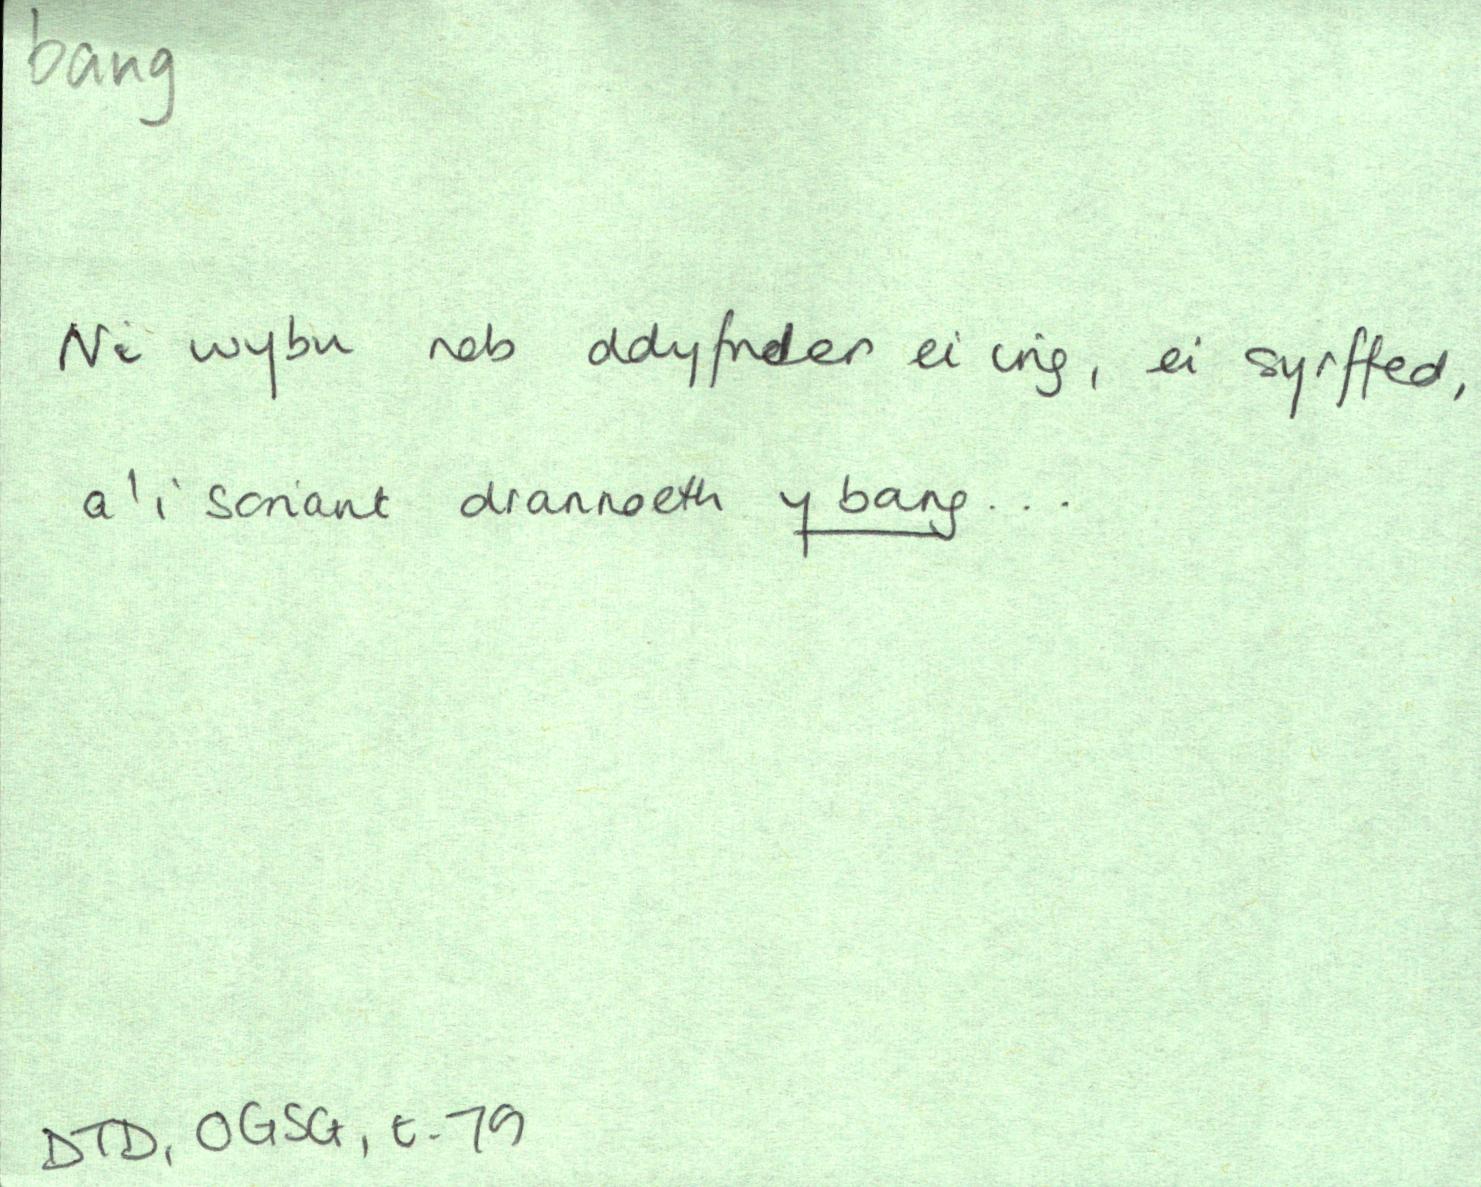 bang
Ni wybu neb ddyfnder ei ing, ei syrffed,
a'i soriant drannoeth y bang...
DTD, OGSG, t. 79